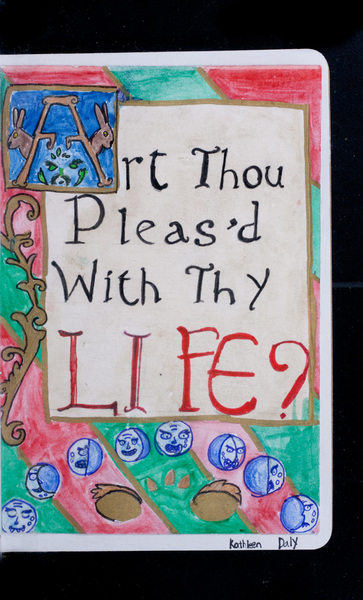 Art Thou
Pleas'd
With Thy
LIFE?
Kathleen Daly